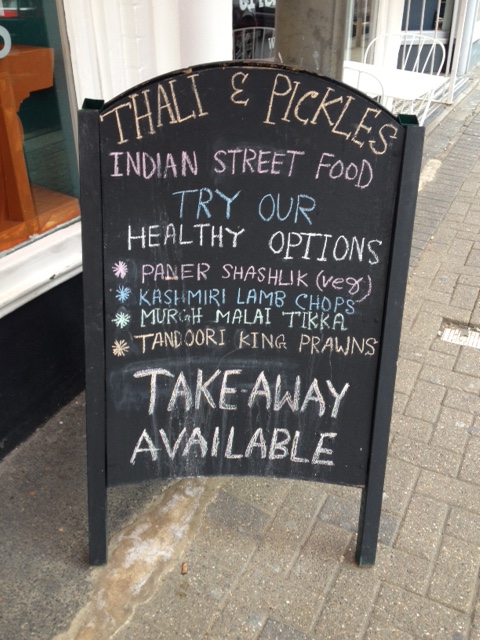 THALI & PICKLES
INDIAN STREET FOOD
TRY OUR
HEALTHY OPTIONS
PANER SHASHLIK (veg)
KASHMIRI LAMB CHOPS
MURGH MALAI TIKKA
TANDOORI KING PRAWNS
TAKE-AWAY
AVAILABLE